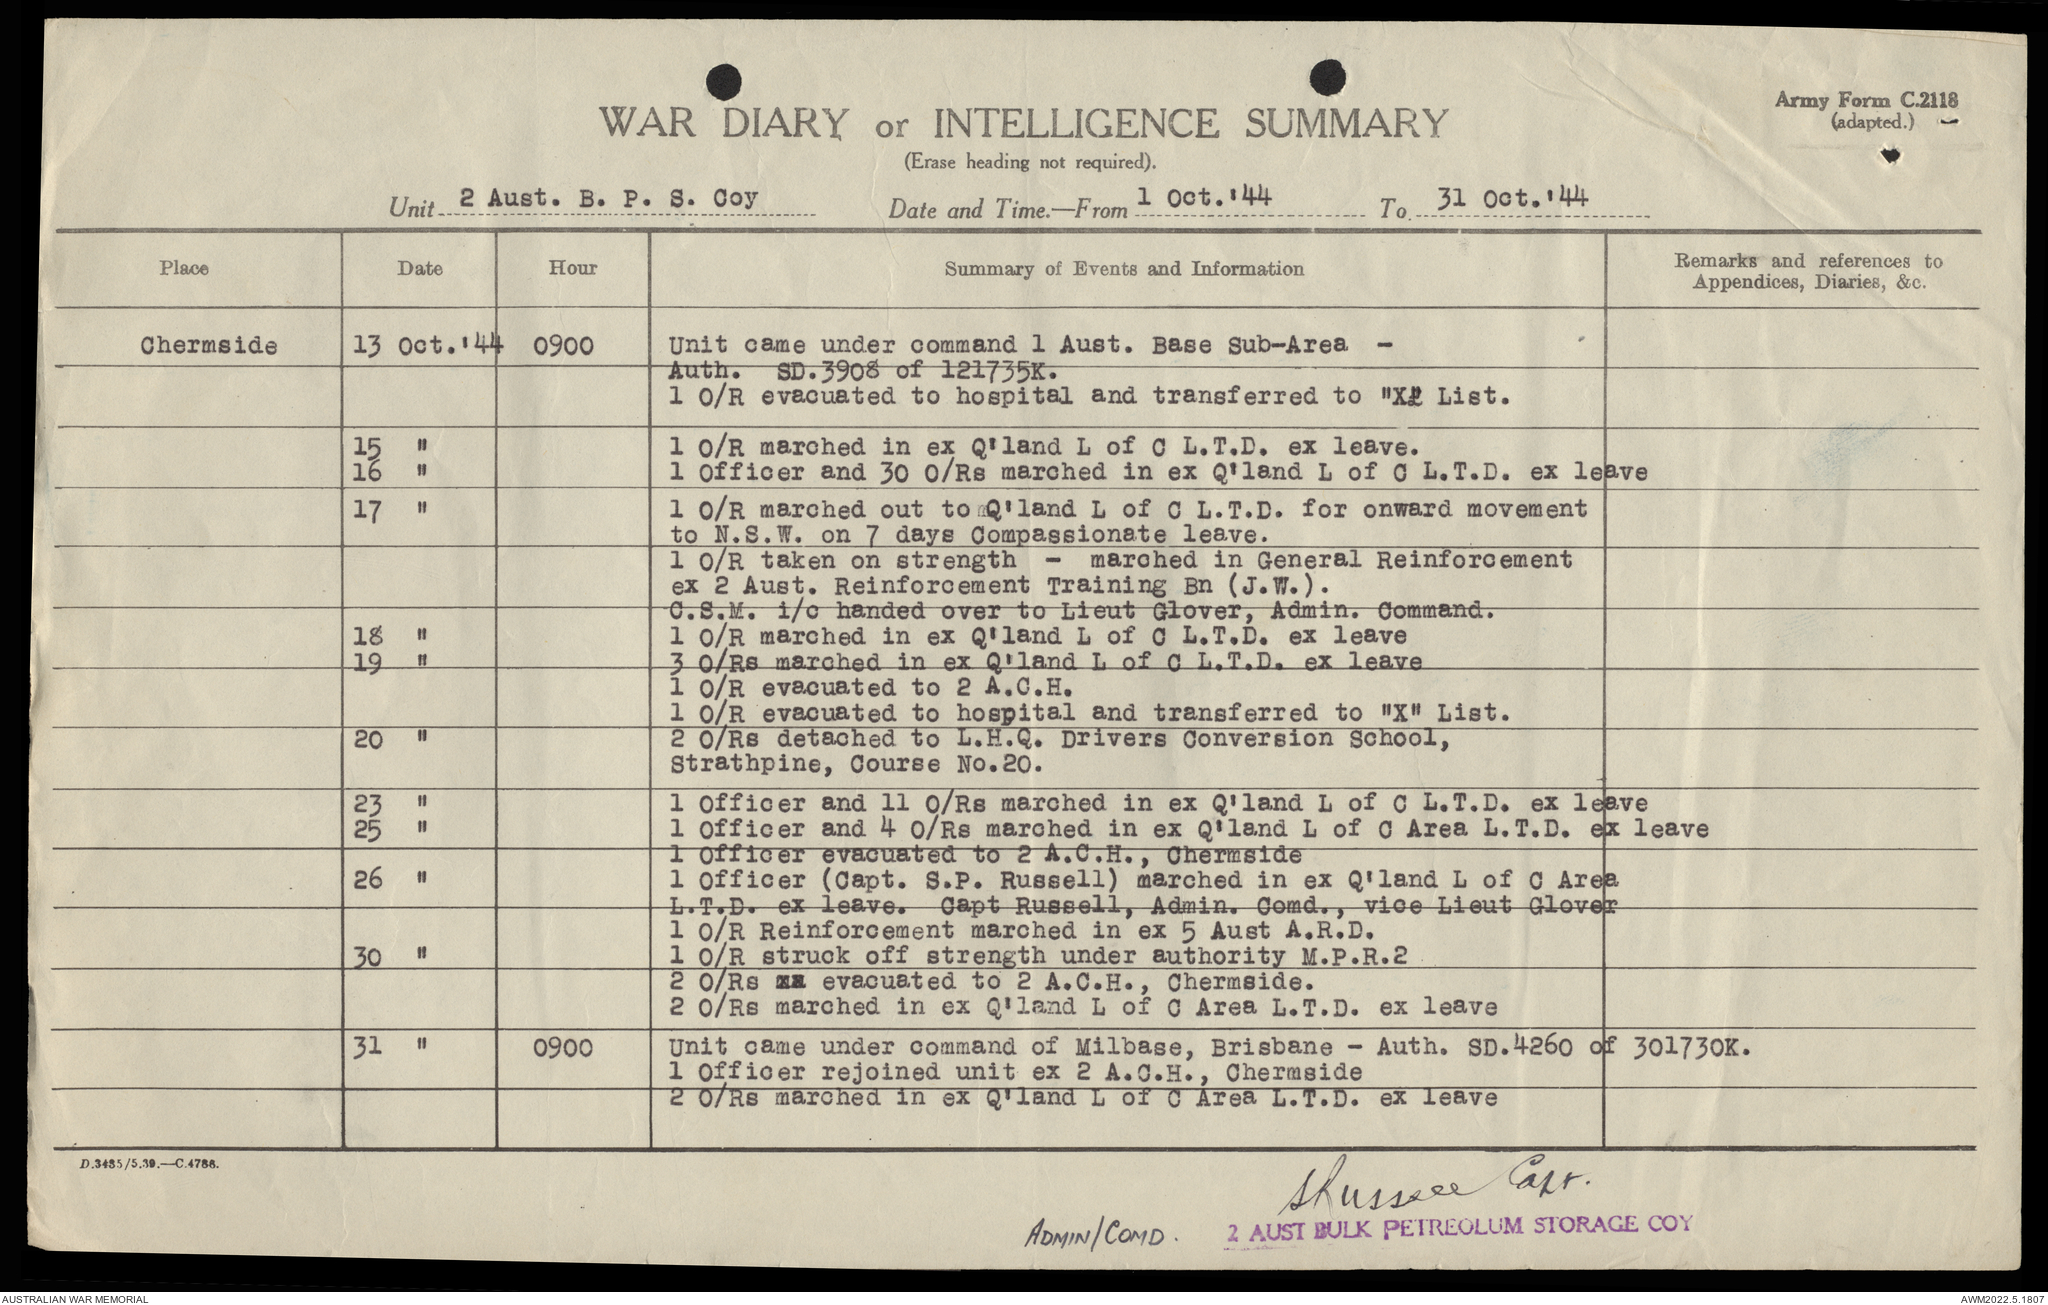 WAR DIARY or INTELLIGENCE SUMMARY
(Erase heading not required).
Army Form C.2118
(adapted.)
Unit 2 Aust. B. P. S. Coy Date and Time.—From 1 Oct.'44 To 31 Oct.'44
Place Date Hour Summary of Events and Information Remarks and references to
Appendices, Diaries, &c.
Chermside 13 Oct.'44 0900 Unit came under command 1 Aust. Base Sub-Area -
Auth. SD.3908 of 121735K.
1 O/R evacuated to hospital and transferred to "X" List.
15 " 1 O/R marched in ex Q'land L of C L.T.D. ex leave.
16 " 1 Officer and 30 O/Rs marched in ex Q'land L of C L.T.D. ex leave
17 " 1 O/R marched out to Q'land L of C L.T.D. for onward movement
to N.S.W. on 7 days Compassionate leave.
1 O/R taken on strength - marched in General Reinforcement
ex 2 Aust. Reinforcement Training Bn (J.W.).
C.S.M. i/c handed over to Lieut Glover, Admin. Command.
18 " 1 O/R marched in ex Q'land L of C L.T.D. ex leave
19 " 3 O/Rs marched in ex Q'land L of C L.T.D. ex leave
1 O/R evacuated to 2 A.C.H.
1 O/R evacuated to hospital and transferred to "X" List.
20 " 2 O/Rs detached to L.H.Q. Drivers Conversion School,
Strathpine, Course No.20.
23 " 1 Officer and 11 O/Rs marched in ex Q'land L of C L.T.D. ex leave
25 " 1 Officer and 4 O/Rs marched in ex Q'land L of C Area L.T.D. ex leave
1 Officer evacuated to 2 A.C.H., Chermside
26 " 1 Officer (Capt. S.P. Russell) marched in ex Q'land L of C Area
L.T.D. ex leave. Capt Russell, Admin. Comd., vice Lieut Glover
1 O/R Reinforcement marched in ex 5 Aust A.R.D.
30 " 1 O/R struck off strength under authority M.P.R.2
2 O/Rs xx evacuated to 2 A.C.H., Chermside.
2 O/Rs marched in ex Q'land L of C Area L.T.D. ex leave
31 " 0900 Unit came under command of Milbase, Brisbane - Auth. SD.4260 of 301730K.
1 Officer rejoined unit ex 2 A.C.H., Chermside
2 O/Rs marched in ex Q'land L of C Area L.T.D. ex leave
D.3485/5.39.—C.4788.
SRussell Capt.
ADMIN/COMD. 2 AUST BULK PETREOLUM STORAGE COY
AUSTRALIAN WAR MEMORIAL AWM2022.5.1807